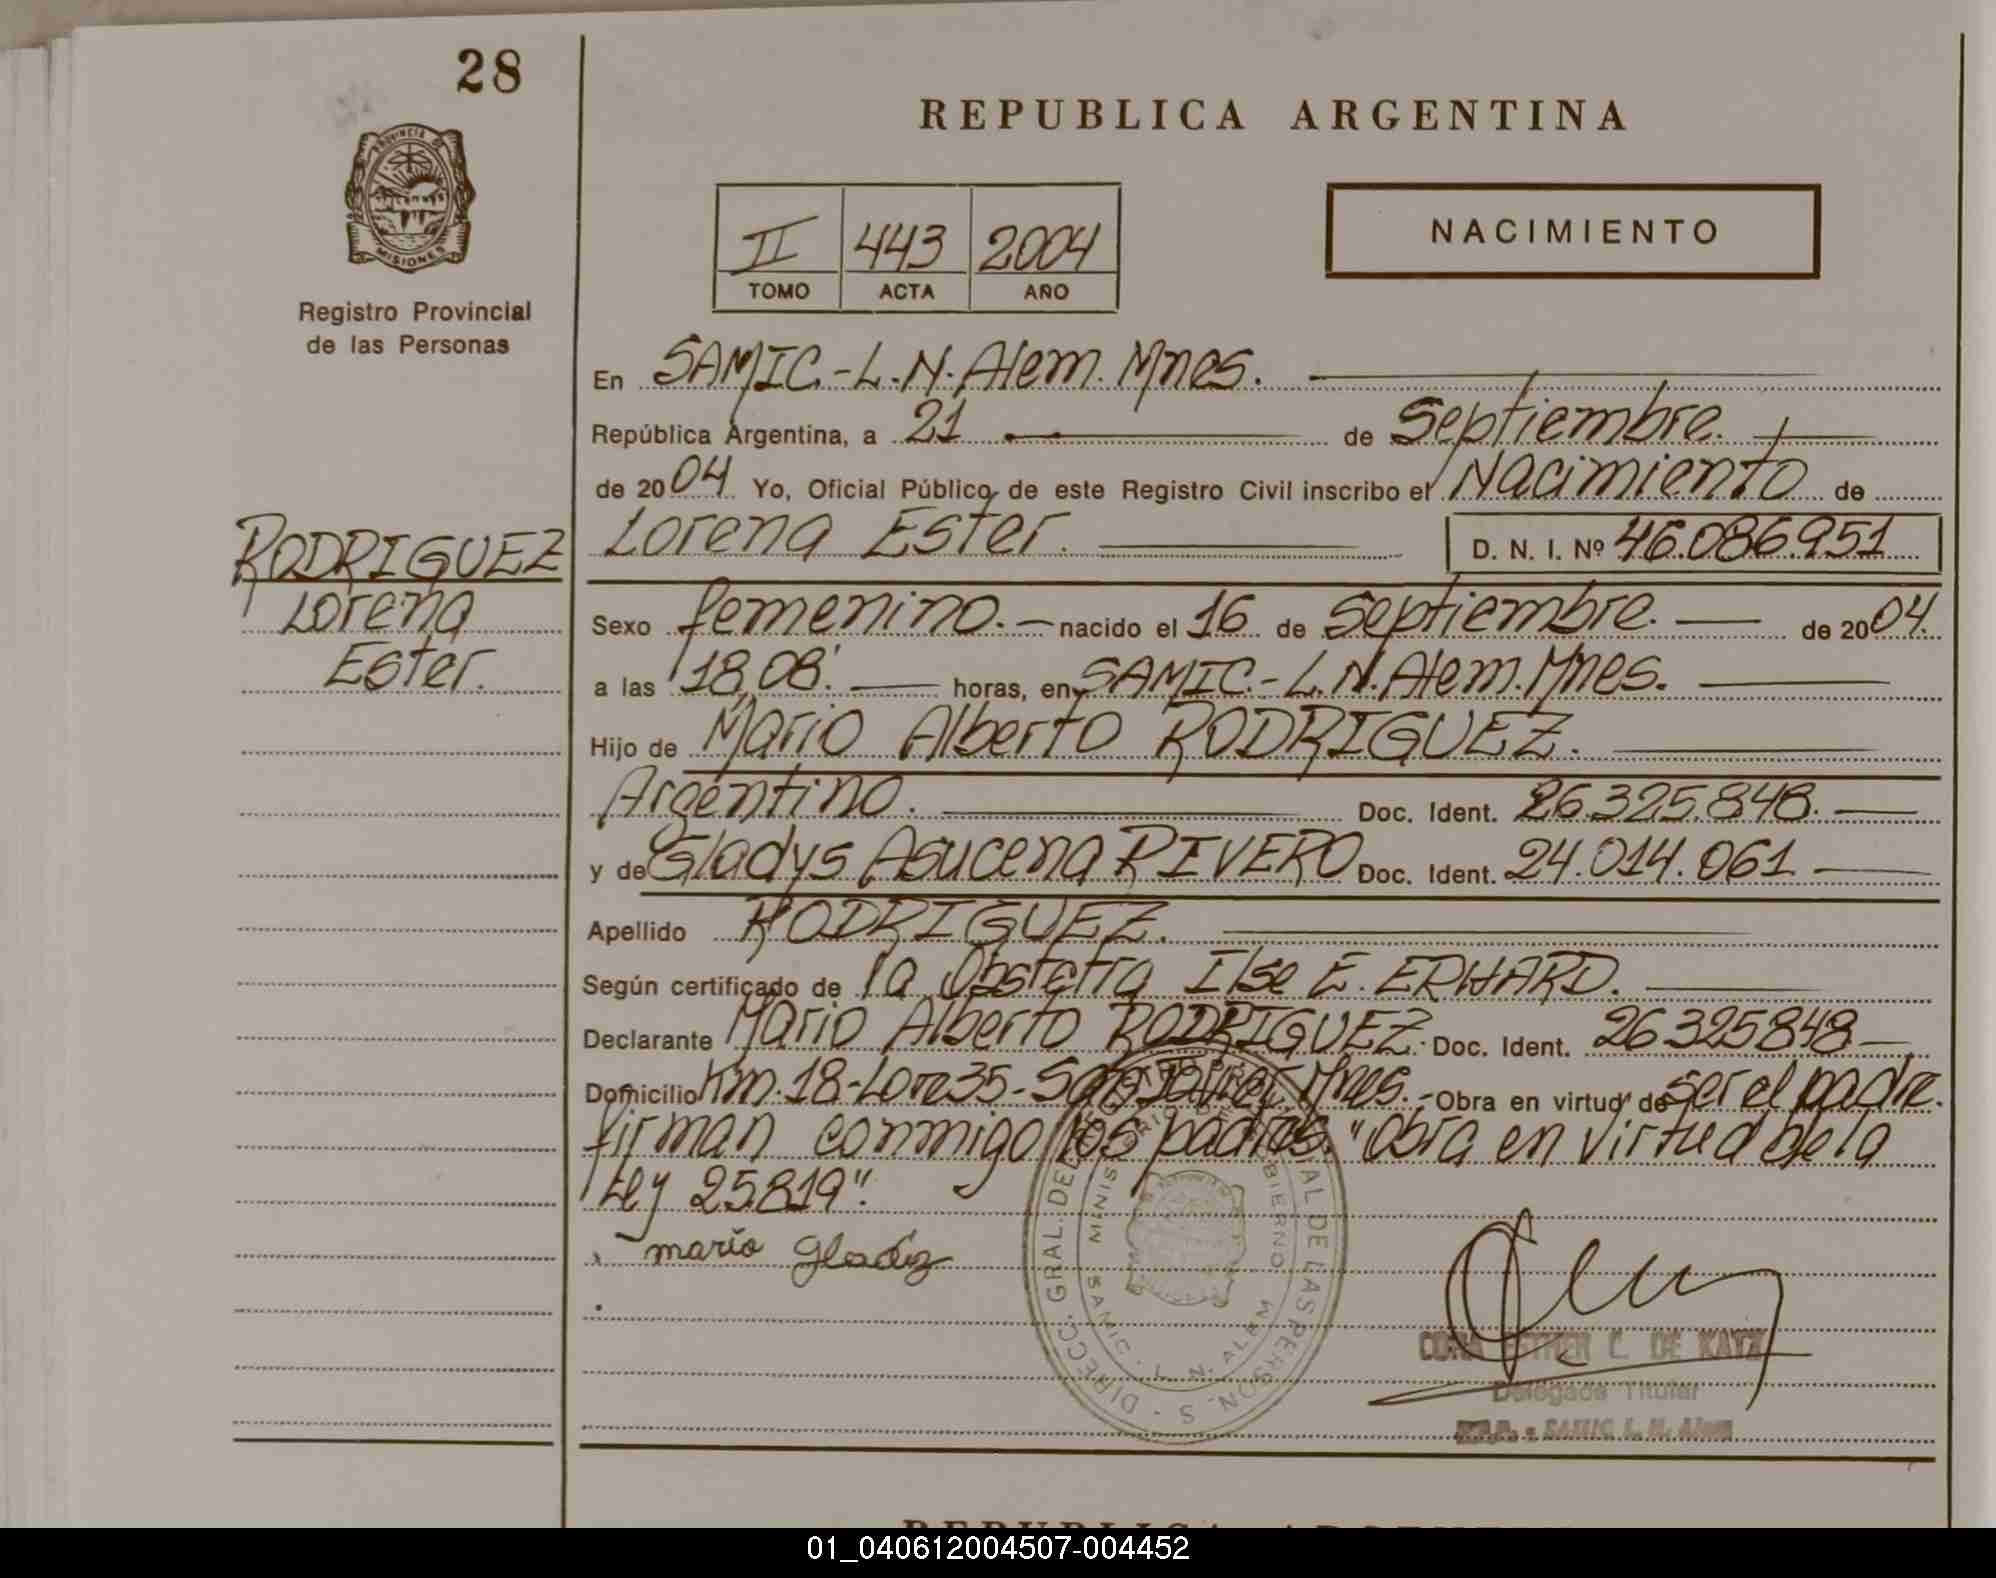 28
REPUBLICA ARGENTINA
PROVINCIA DE
MISIONES
Registro Provincial
de las Personas
NACIMIENTO
II 443 2004
TOMO ACTA AÑO
En SAMIC.-L.N.Alem. Mnes.
República Argentina, a 21 de Septiembre.
de 2004 Yo, Oficial Público de este Registro Civil inscribo el Nacimiento de
Lorena Ester. D. N. I. Nº 46.086.951
RODRIGUEZ
Lorena
Ester.
Sexo femenino.- nacido el 16 de Septiembre. de 2004.
a las 18,08'. horas, en SAMIC.-L.N.Alem.Mnes.
Hijo de Mario Alberto RODRIGUEZ.
Argentino. Doc. Ident. 26.325.848.
y de Gladys Asucena RIVERO Doc. Ident. 24.014.061
Apellido RODRIGUEZ.
Según certificado de la Obstetra Ilse E. ERHARD.
Declarante Mario Alberto RODRIGUEZ. Doc. Ident. 26325848
Domicilio Km.18-Lote35-San Javier, Mnes.- Obra en virtud de ser el padre.
firman conmigo los padres. "Obra en virtud de la
Ley 25.819".
mario gladiz
DIRECC. GRAL. DEL REGISTRO PROVINCIAL DE LAS PERSONAS
MINISTERIO DE GOBIERNO
SAMIC. L. N. ALEM
ESTHER C. DE KATZ
Delegada Titular
SAMIC L. N. Alem
REPUBLICA ARGENTINA
01_040612004507-004452